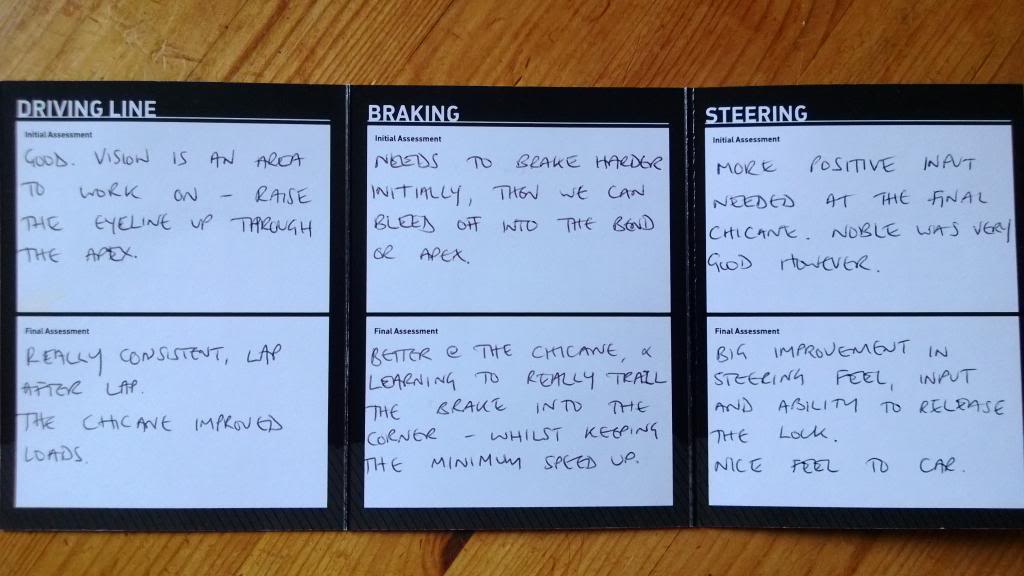 DRIVING LINE
Initial Assessment
GOOD. VISION IS AN AREA
TO WORK ON – RAISE
THE EYELINE UP THROUGH
THE APEX.
Final Assessment
REALLY CONSISTENT, LAP
AFTER LAP.
THE CHICANE IMPROVED
LOADS.
BRAKING
Initial Assessment
NEEDS TO BRAKE HARDER
INITIALLY, THEN WE CAN
BLEED OFF INTO THE BEND
OR APEX.
Final Assessment
BETTER @ THE CHICANE, &
LEARNING TO REALLY TRAIL
THE BRAKE INTO THE
CORNER – WHILST KEEPING
THE MINIMUM SPEED UP.
STEERING
Initial Assessment
MORE POSITIVE INPUT
NEEDED AT THE FINAL
CHICANE. NOBLE WAS VERY
GOOD HOWEVER.
Final Assessment
BIG IMPROVEMENT IN
STEERING FEEL, INPUT
AND ABILITY TO RELEASE
THE LOCK.
NICE FEEL TO CAR.